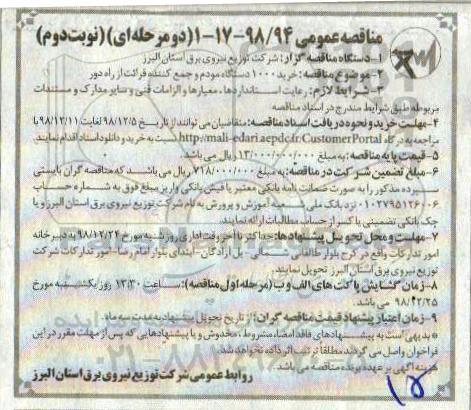 مناقصه عمومی ۹۸/۹۴-۱۷-۱ (دو مرحله‌ای) (نوبت دوم)
۱-دستگاه مناقصه گزار: شرکت توزیع نیروی برق استان البرز
۲-موضوع مناقصه: خرید ۱۰۰۰ دستگاه مودم و جمع کننده قرائت از راه دور
۳-شرایط لازم: رعایت استانداردها، معیارها و الزامات فنی و سایر مدارک و مستندات
مربوطه طبق شرایط مندرج در اسناد مناقصه
۴-مهلت خرید و نحوه دریافت اسناد مناقصه: متقاضیان می توانند از تاریخ ۹۸/۱۲/۵ لغایت ۹۸/۱۲/۱۱ با
مراجعه به درگاه http://mali-edari.aepdc.ir/CustomerPortal نسبت به خرید و دانلود اسناد اقدام نمایند.
۵-قیمت پایه مناقصه: به مبلغ ۱۳/۰۰۰/۰۰۰/۰۰۰ ریال می باشد.
۶-مبلغ تضمین شرکت در مناقصه: به مبلغ ۷۱۸/۰۰۰/۰۰۰ ریال می باشد که مناقصه گران بایستی
سپرده مذکور را به صورت ضمانت نامه بانکی معتبر یا فیش بانکی واریز مبلغ فوق به شماره حساب
۰۱۰۲۷۹۵۱۲۶۰۰۶ نزد بانک ملی شعبه آموزش و پرورش به نام شرکت توزیع نیروی برق استان البرز و یا
چک بانکی تضمینی یا کسر از حساب مطالبات ارائه نمایند.
۷-مهلت و محل تحویل پیشنهادها: حداکثر تا آخر وقت اداری روز شنبه مورخ ۹۸/۱۲/۲۴ به دبیرخانه
امور تدارکات واقع در کرج بلوار طالقانی شمالی-پل آزادگان-ابتدای بلوار امام رضا-امور تدارکات شرکت
توزیع نیروی برق استان البرز تحویل نمایند.
۸-زمان گشایش پاکت های الف و ب (مرحله اول مناقصه): ساعت ۱۳:۳۰ روز یکشنبه مورخ
۹۸/۱۲/۲۵ می باشد.
۹-زمان اعتبار پیشنهاد قیمت مناقصه گران: از تاریخ تحویل پیشنهاد به مدت سه ماه.
* بدیهی است به پیشنهادهای فاقد امضاء، مشروط، مخدوش و یا پیشنهادهایی که پس از مهلت مقرر در این
فراخوان واصل می گردند مطلقا ترتیب اثر داده نخواهد شد.
هزینه آگهی بر عهده برنده مناقصه می باشد.
روابط عمومی شرکت توزیع نیروی برق استان البرز
۱۵